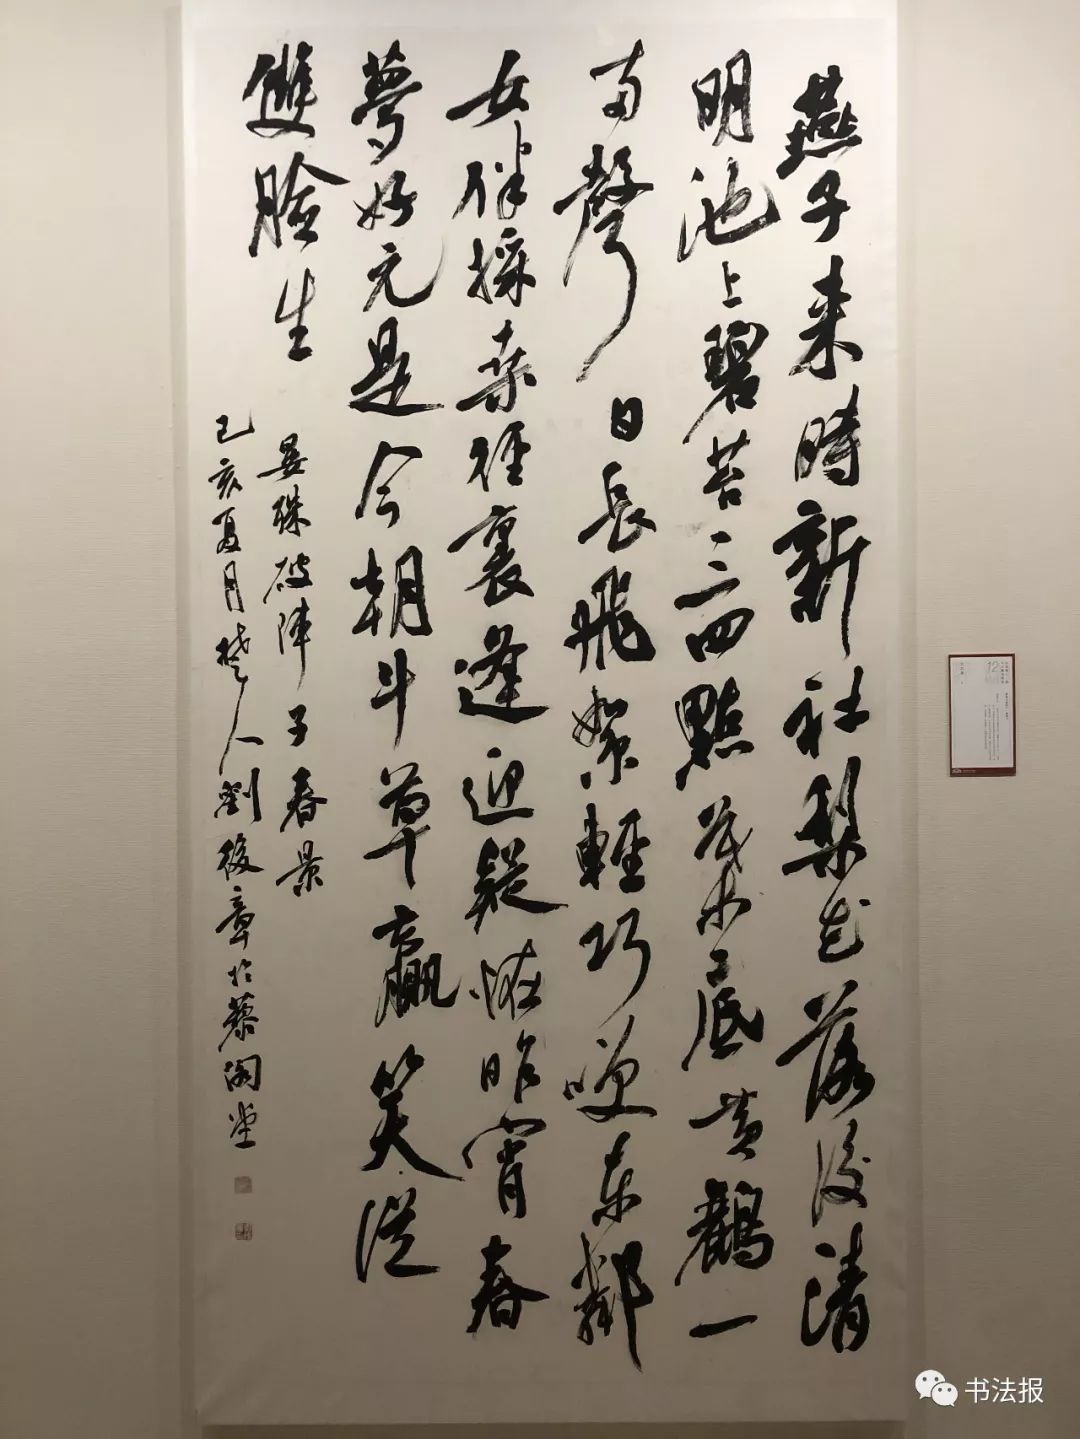 燕子来時新社梨花落後清
明池上碧苔三四點葉底黄鸝一
两聲日長飛絮輕巧咲東鄰
女伴採桑徑裏逢迎疑怪昨宵春
夢好元是今朝斗草贏笑從
雙臉生
晏殊破陣子春景
己亥夏月楚人劉後章於藜閣堂
12
书法报